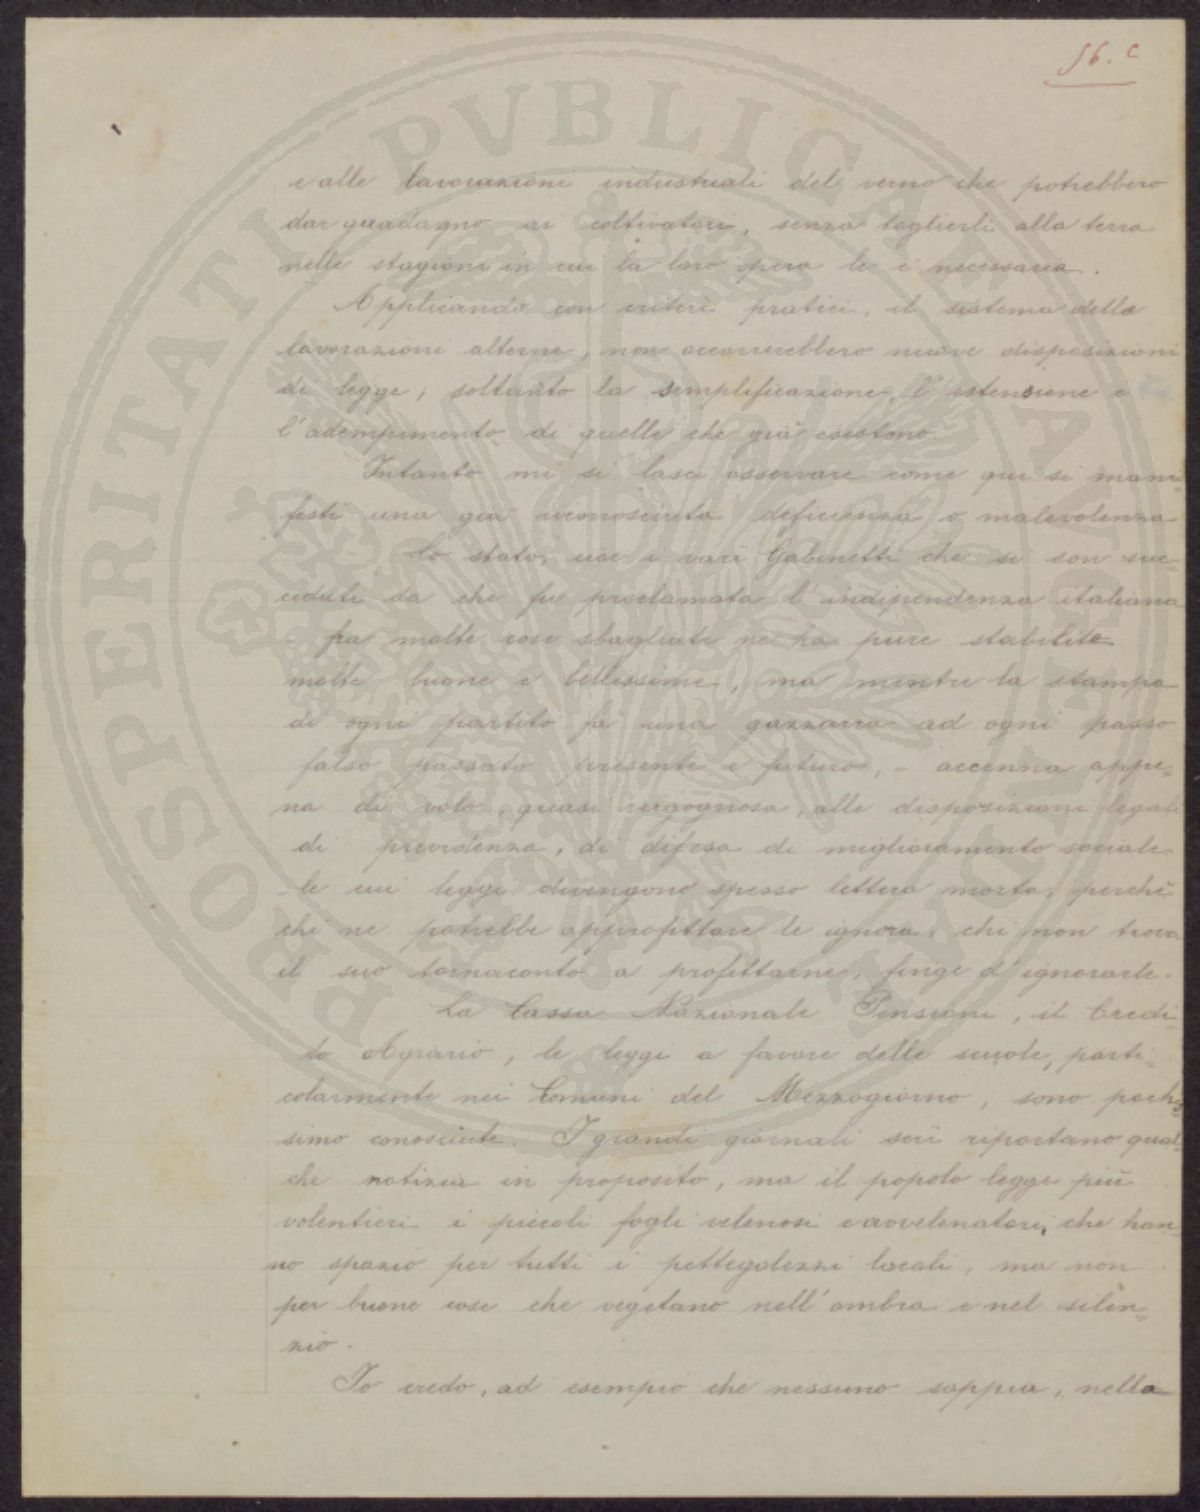 56. c
e alle lavorazioni industriali del verno che potrebbero
dar guadagno ai coltivatori, senza toglierli alla terra
nelle stagioni in cui la loro opera le è necessaria.
Applicando con criteri pratici, il sistema delle
lavorazioni alterne, non occorrerebbero nuove disposizioni
di legge; soltanto la semplificazione, l'estensione e
l'adempimento di quelle che già esistono.
Intanto mi si lasci osservare come qui si mani=
festi una già riconosciuta deficienza o malevolenza
Lo stato, cioè i vari Gabinetti che si son suc=
ceduti da che fu proclamata l'indipendenza italiana
- fra molte cose sbagliate ne ha pure stabilite
molte buone e bellissime, ma mentre la stampa
di ogni partito fà una gazzarra ad ogni passo
falso passato presente e futuro, - accenna appe=
na di volo, quasi vergognosa, alle disposizioni legali
di previdenza, di difesa di miglioramento sociale
le cui leggi divengono spesso lettera morta, perchè
chi ne potrebbe approfittare le ignora, chi non trova
il suo tornaconto a profittarne, finge d'ignorarle.
La Cassa Nazionale Pensioni, il Credi=
to Agrario, le leggi a favore delle scuole, parti=
colarmente nei Comuni del Mezzogiorno, sono pochis=
simo conosciute. I grandi giornali serî riportano qual=
che notizia in proposito, ma il popolo legge più
volentieri i piccoli fogli velenosi e avvelenatori, che han=
no spazio per tutti i pettegolezzi locali, ma non
per buone cose che vegetano nell'ombra e nel silen=
zio.
Io credo, ad esempio che nessuno sappia, nella
PROSPERITATI PVBLICAE AVGENDAE